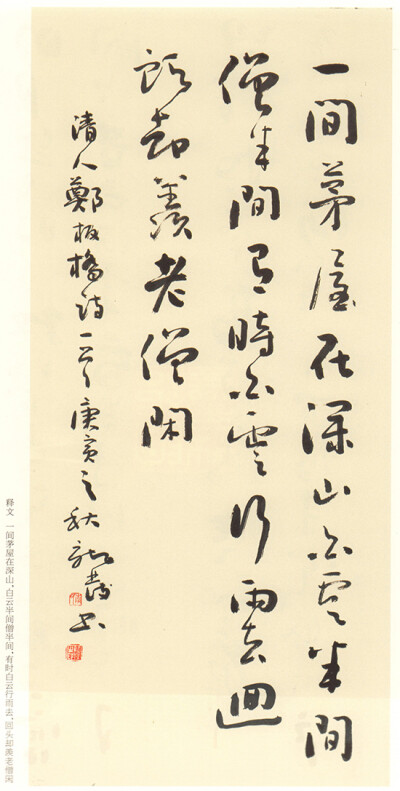 一間茅屋在深山白雲半間
僧半間有時白雲行雨去迴
頭却羨老僧閑
清人鄭板橋詩一首庚寅之秋書
释文 一间茅屋在深山,白云半间僧半间,有时白云行雨去,回头却羡老僧闲